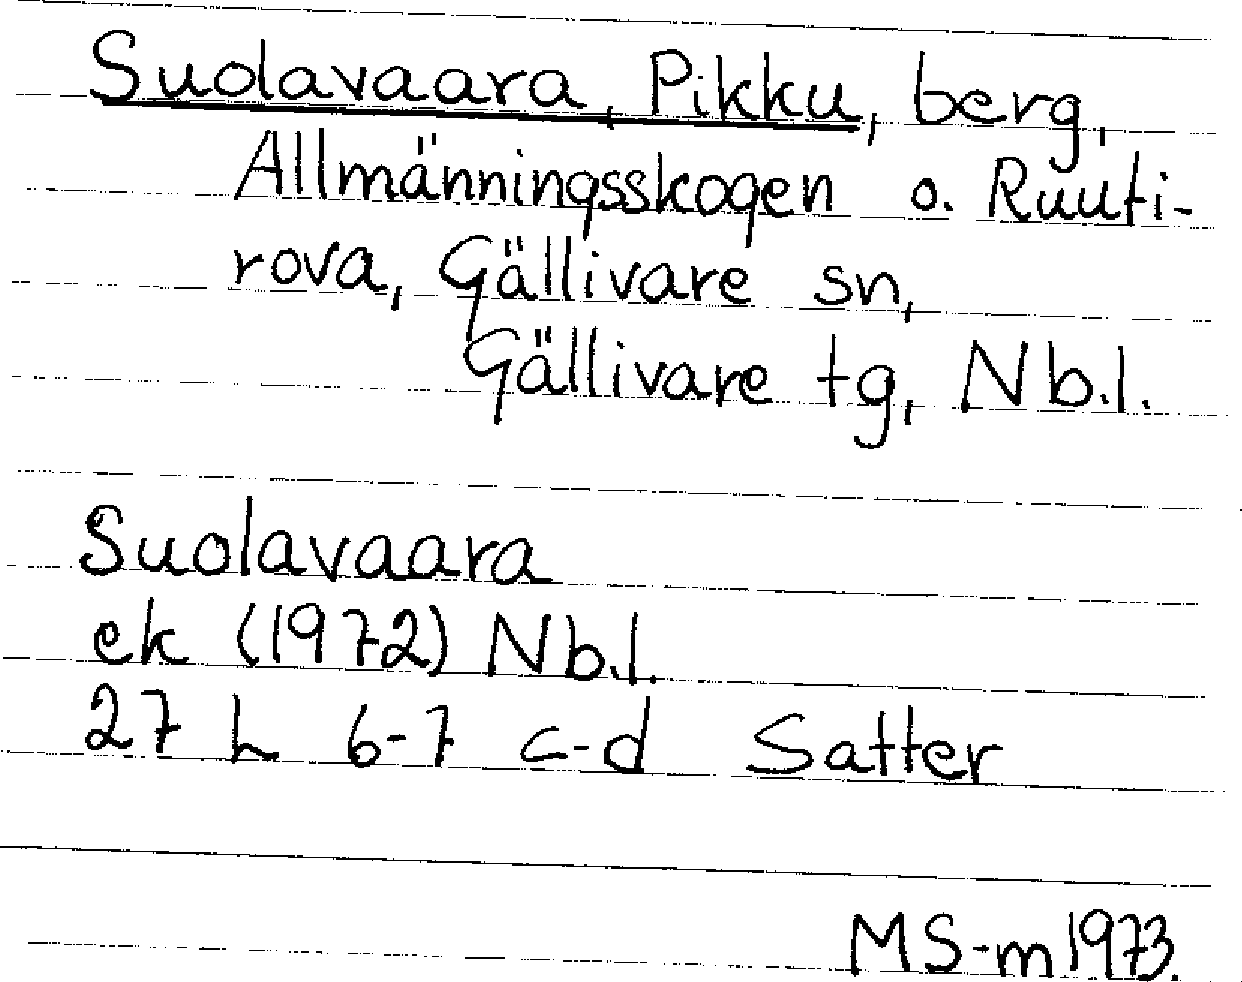 Suolavaara, Pikku, berg,
Allmänningsskogen o. Ruuti-
rova, Gällivare sn,
Gällivare tg, Nb.l.
Suolavaara
ek (1972) Nb.l.
27 L 6-7 c-d Satter
MS-m 1973.